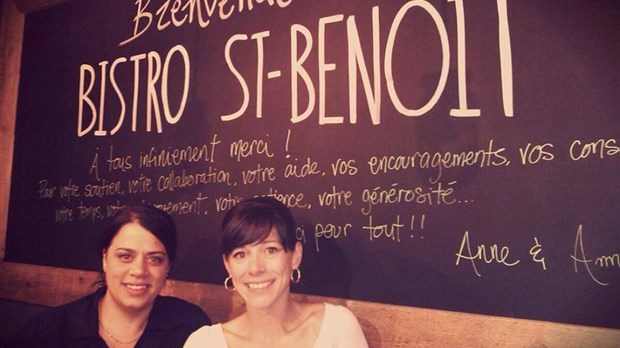 Bienvenue
BISTRO ST-BENOIT
À tous infiniement merci !
Pour votre soutien, votre collaboration, votre aide, vos encouragements, vos cons
votre temps, votre patience, votre générosité...
ci pour tout !!
Anne & Ann